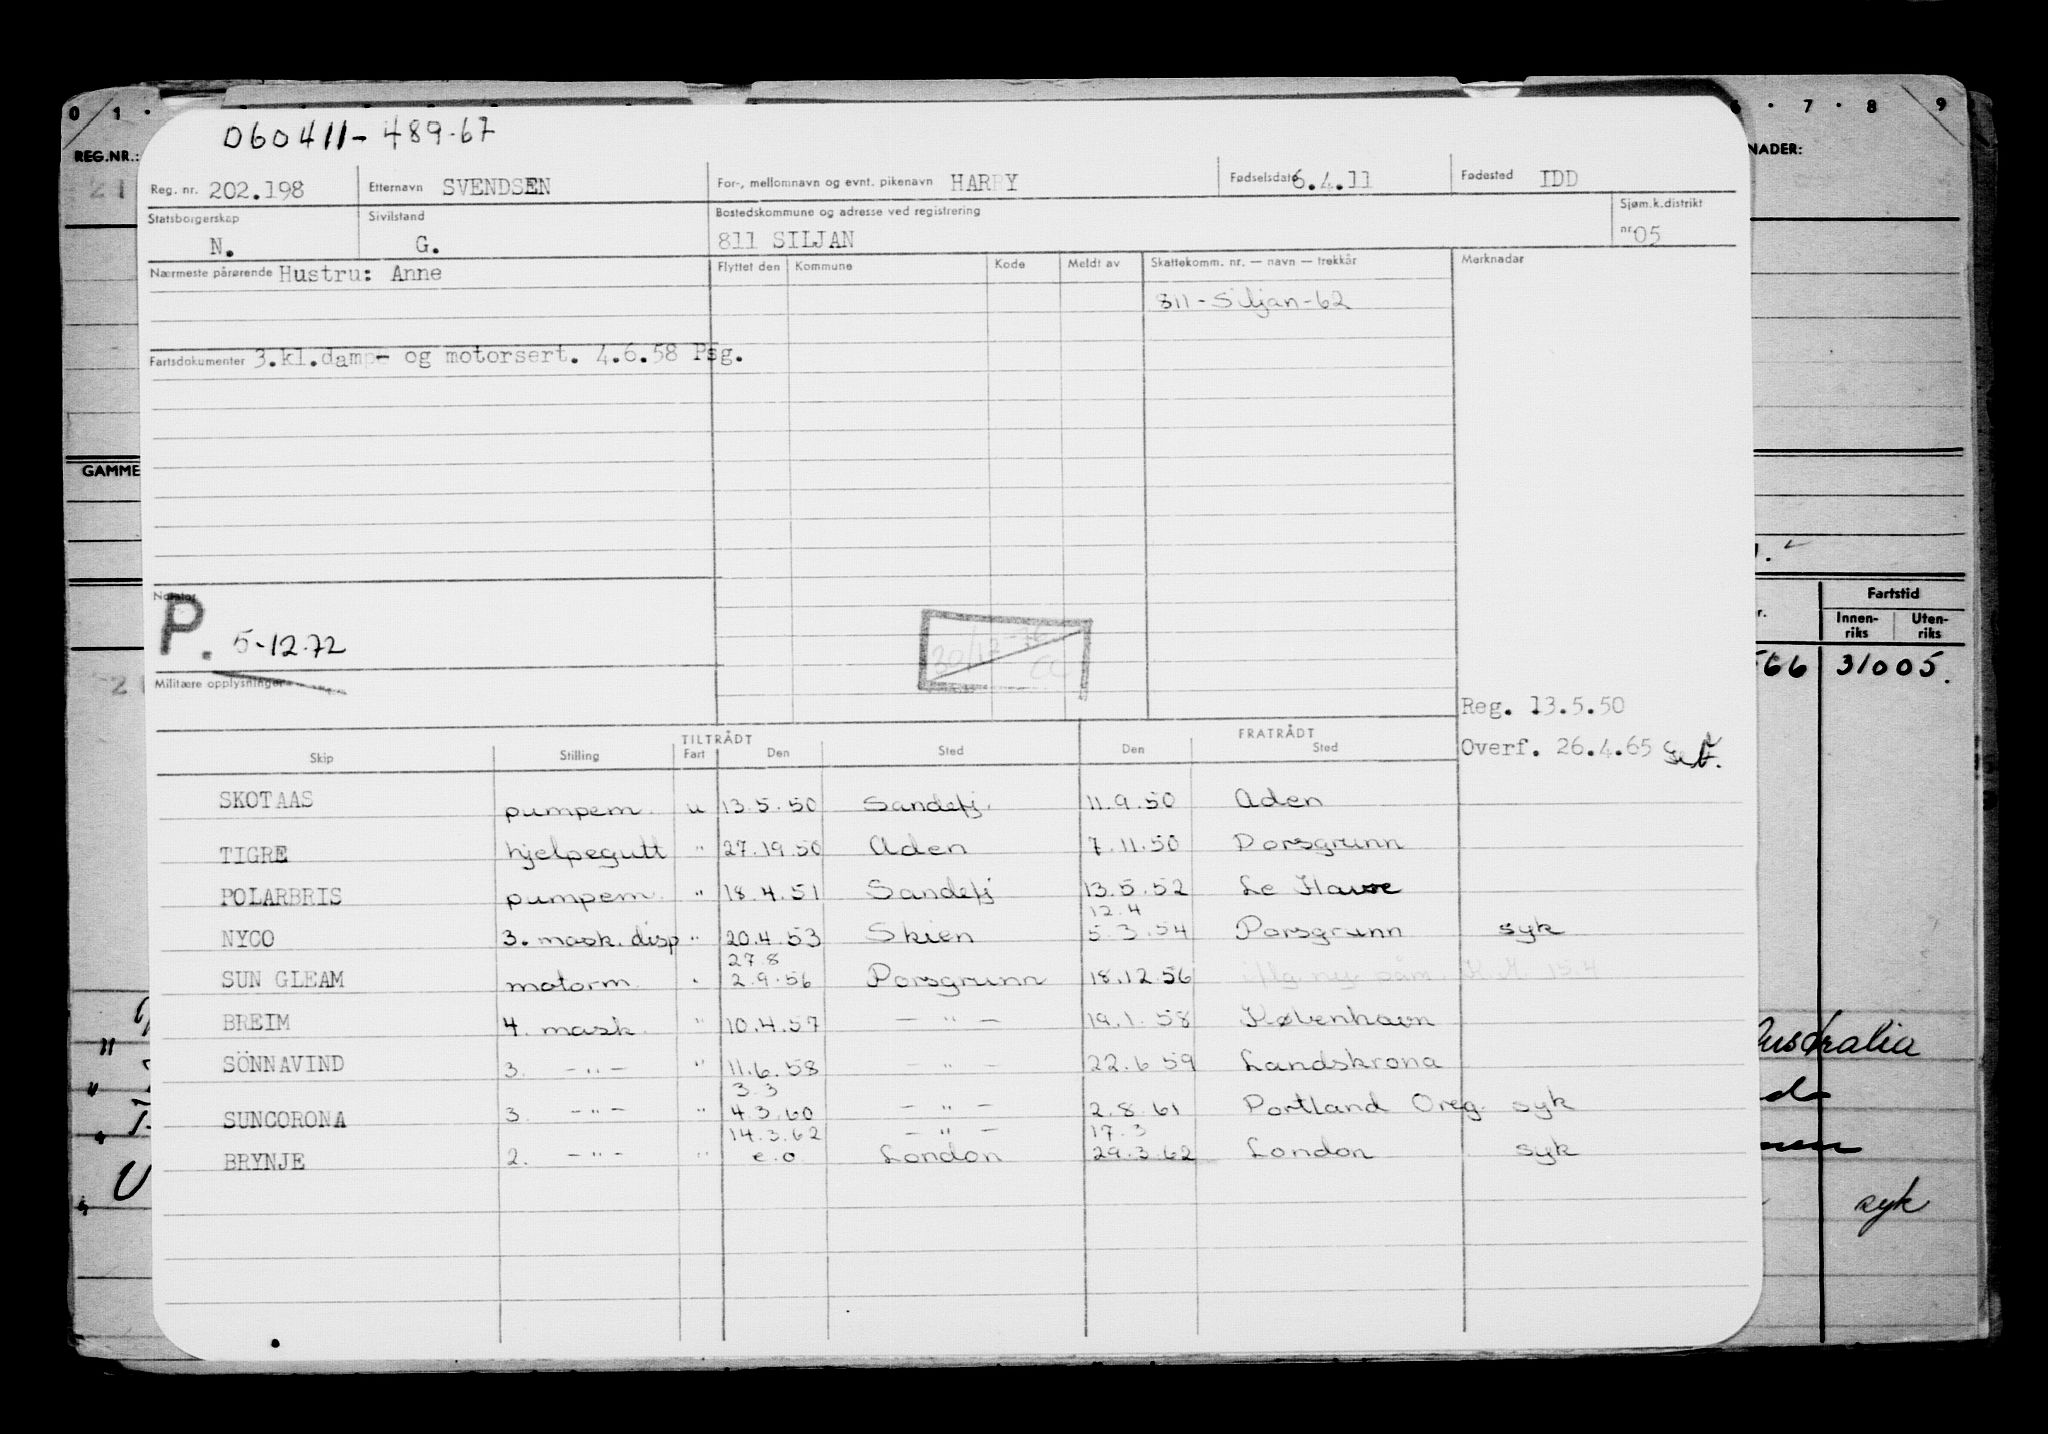 0 1 · 6 · 7 · 8 9
REG.NR.:
NADER:
060411-489-67
Reg. nr. 202.198 Etternavn SVENDSEN For-, mellomnavn og evnt. pikenavn HARRY Fødselsdato 6.4.11 Fødested IDD
Statsborgerskap Sivilstand Bostedskommune og adresse ved registrering Sjøm.k.distrikt
N. G. 811 SILJAN nr 05
Nærmeste pårørende Hustru: Anne Flyttet den Kommune Kode Meldt av Skattekomm. nr. — navn — trekkår Merknader
811 - Siljan - 62
Fartsdokumenter 3.kl.damp- og motorsert. 4.6.58 Psg.
GAMME
Notater
P. 5-12.72
Fartstid
Innen-riks Uten-riks
566 31005.
Militære opplysninger
Reg. 13.5.50
Overf. 26.4.65
TILTRÅDT FRATRÅDT
Skip Stilling Fart Den Sted Den Sted
SKOTAAS pumpem. u 13.5.50 Sandefj. 11.9.50 Aden
TIGRE hjelpegutt " 27.19.50 Aden 7.11.50 Porsgrunn
POLARBRIS pumpem. " 18.4.51 Sandefj 13.5.52 Le Havre
12.4
NYCO 3. mask. disp " 20.4.53 Skien 5.3.54 Porsgrunn syk
27.8
SUN GLEAM motorm. " 2.9.56 Porsgrunn 18.12.56
BREIM 4. mask. " 10.4.57 — " — 19.1.58 København
SÖNNAVIND 3. — " — " 11.6.58 — " — 22.6.59 Landskrona
3.3
SUNCORONA 3. — " — " 4.3.60 — " — 2.8.61 Portland Oreg. syk
14.3.62 — " — 17.3
BRYNJE 2. — " — " e.o. London 29.3.62 London syk
Australia
syk